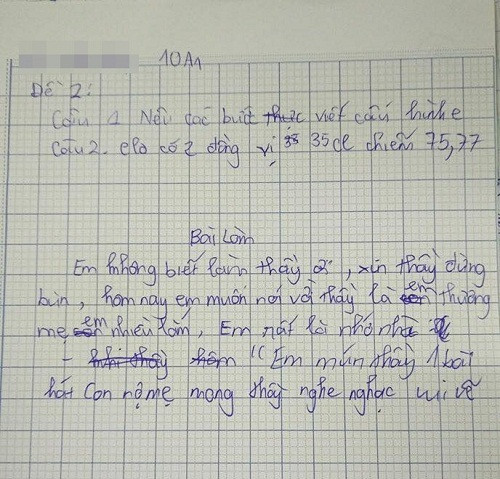 10A1
Đề 2:
Câu 1 Nêu các bước viết cấu hình e
Câu 2. clo có 2 đồng vị 35cl chiếm 75,77
Bài Làm
Em không biết làm thầy ơi, xin thầy đừng
bùn, hôm nay em muốn nói với thầy là em thương
mẹ em nhiều lắm, Em rất là nhớ nhà
- "Em mún thầy 1 bài
hát Con nợ mẹ mong thầy nghe nghạc vui vẽ